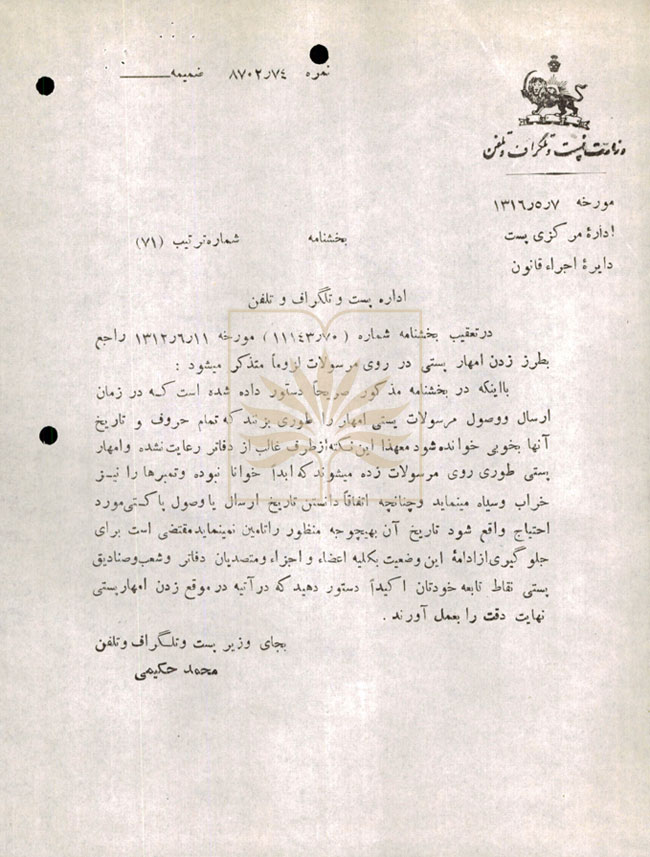 نمره ۸۷۰۲ر۷۴ ضمیمه
وزارت پست و تلگراف و تلفن
مورخه ۷ر۵ر۱۳۱۶
ادارهٔ مرکزی پست
بخشنامه شماره ترتیب (۷۱)
دایرهٔ اجراء قانون
اداره پست و تلگراف و تلفن
در تعقیب بخشنامه شماره (۱۱۱۴۳ر۷۰) مورخه ۱۱ر۶ر۱۳۱۲ راجع
بطرز زدن امهار پستی در روی مرسولات لزوماً متذکر میشود :
بااینکه در بخشنامه مذکور صریحاً دستور داده شده است که در زمان
ارسال ووصول مرسولات پستی امهار را طوری بزنند که تمام حروف و تاریخ
آنها بخوبی خوانده شود معهذا این نکته ازطرف غالب از دفاتر رعایت نشده وامهار
پستی طوری روی مرسولات زده میشوند که ابداً خوانا نبوده وتمبرها را نیز
خراب وسیاه مینماید وچنانچه اتفاقاً دانستن تاریخ ارسال یا وصول پاکتی مورد
احتیاج واقع شود تاریخ آن بهیچوجه منظور راتامین نمینماید مقتضی است برای
جلو گیری از ادامهٔ این وضعیت بکلیه اعضاء و اجزاء ومتصدیان دفاتر وشعب وصنادیق
پستی نقاط تابعه خودتان اکیداً دستور دهید که در آتیه در موقع زدن امهار پستی
نهایت دقت را بعمل آورند .
بجای وزیر پست وتلگراف وتلفن
محمد حکیمی